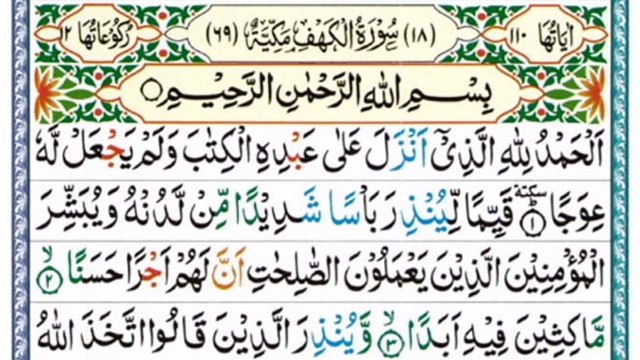 اٰیَاتُهَا ١١٠ (١٨) سُوْرَةُ الْكَهْفِ مَكِّيَّةٌ (٦٩) رُكُوْعَاتُهَا ١٢
بِسْمِ اللهِ الرَّحْمٰنِ الرَّحِيْمِ
اَلْحَمْدُ لِلّٰهِ الَّذِیْۤ اَنْزَلَ عَلٰى عَبْدِهِ الْكِتٰبَ وَلَمْ يَجْعَلْ لَّهٗ
عِوَجًا ؕ سكتة ١ قَيِّمًا لِّيُنْذِرَ بَاْسًا شَدِيْدًا مِّنْ لَّدُنْهُ وَيُبَشِّرَ
الْمُؤْمِنِيْنَ الَّذِيْنَ يَعْمَلُوْنَ الصّٰلِحٰتِ اَنَّ لَهُمْ اَجْرًا حَسَنًا ۙ ٢
مَّاكِثِيْنَ فِيْهِ اَبَدًا ۙ ٣ وَّيُنْذِرَ الَّذِيْنَ قَالُوا اتَّخَذَ اللهُ